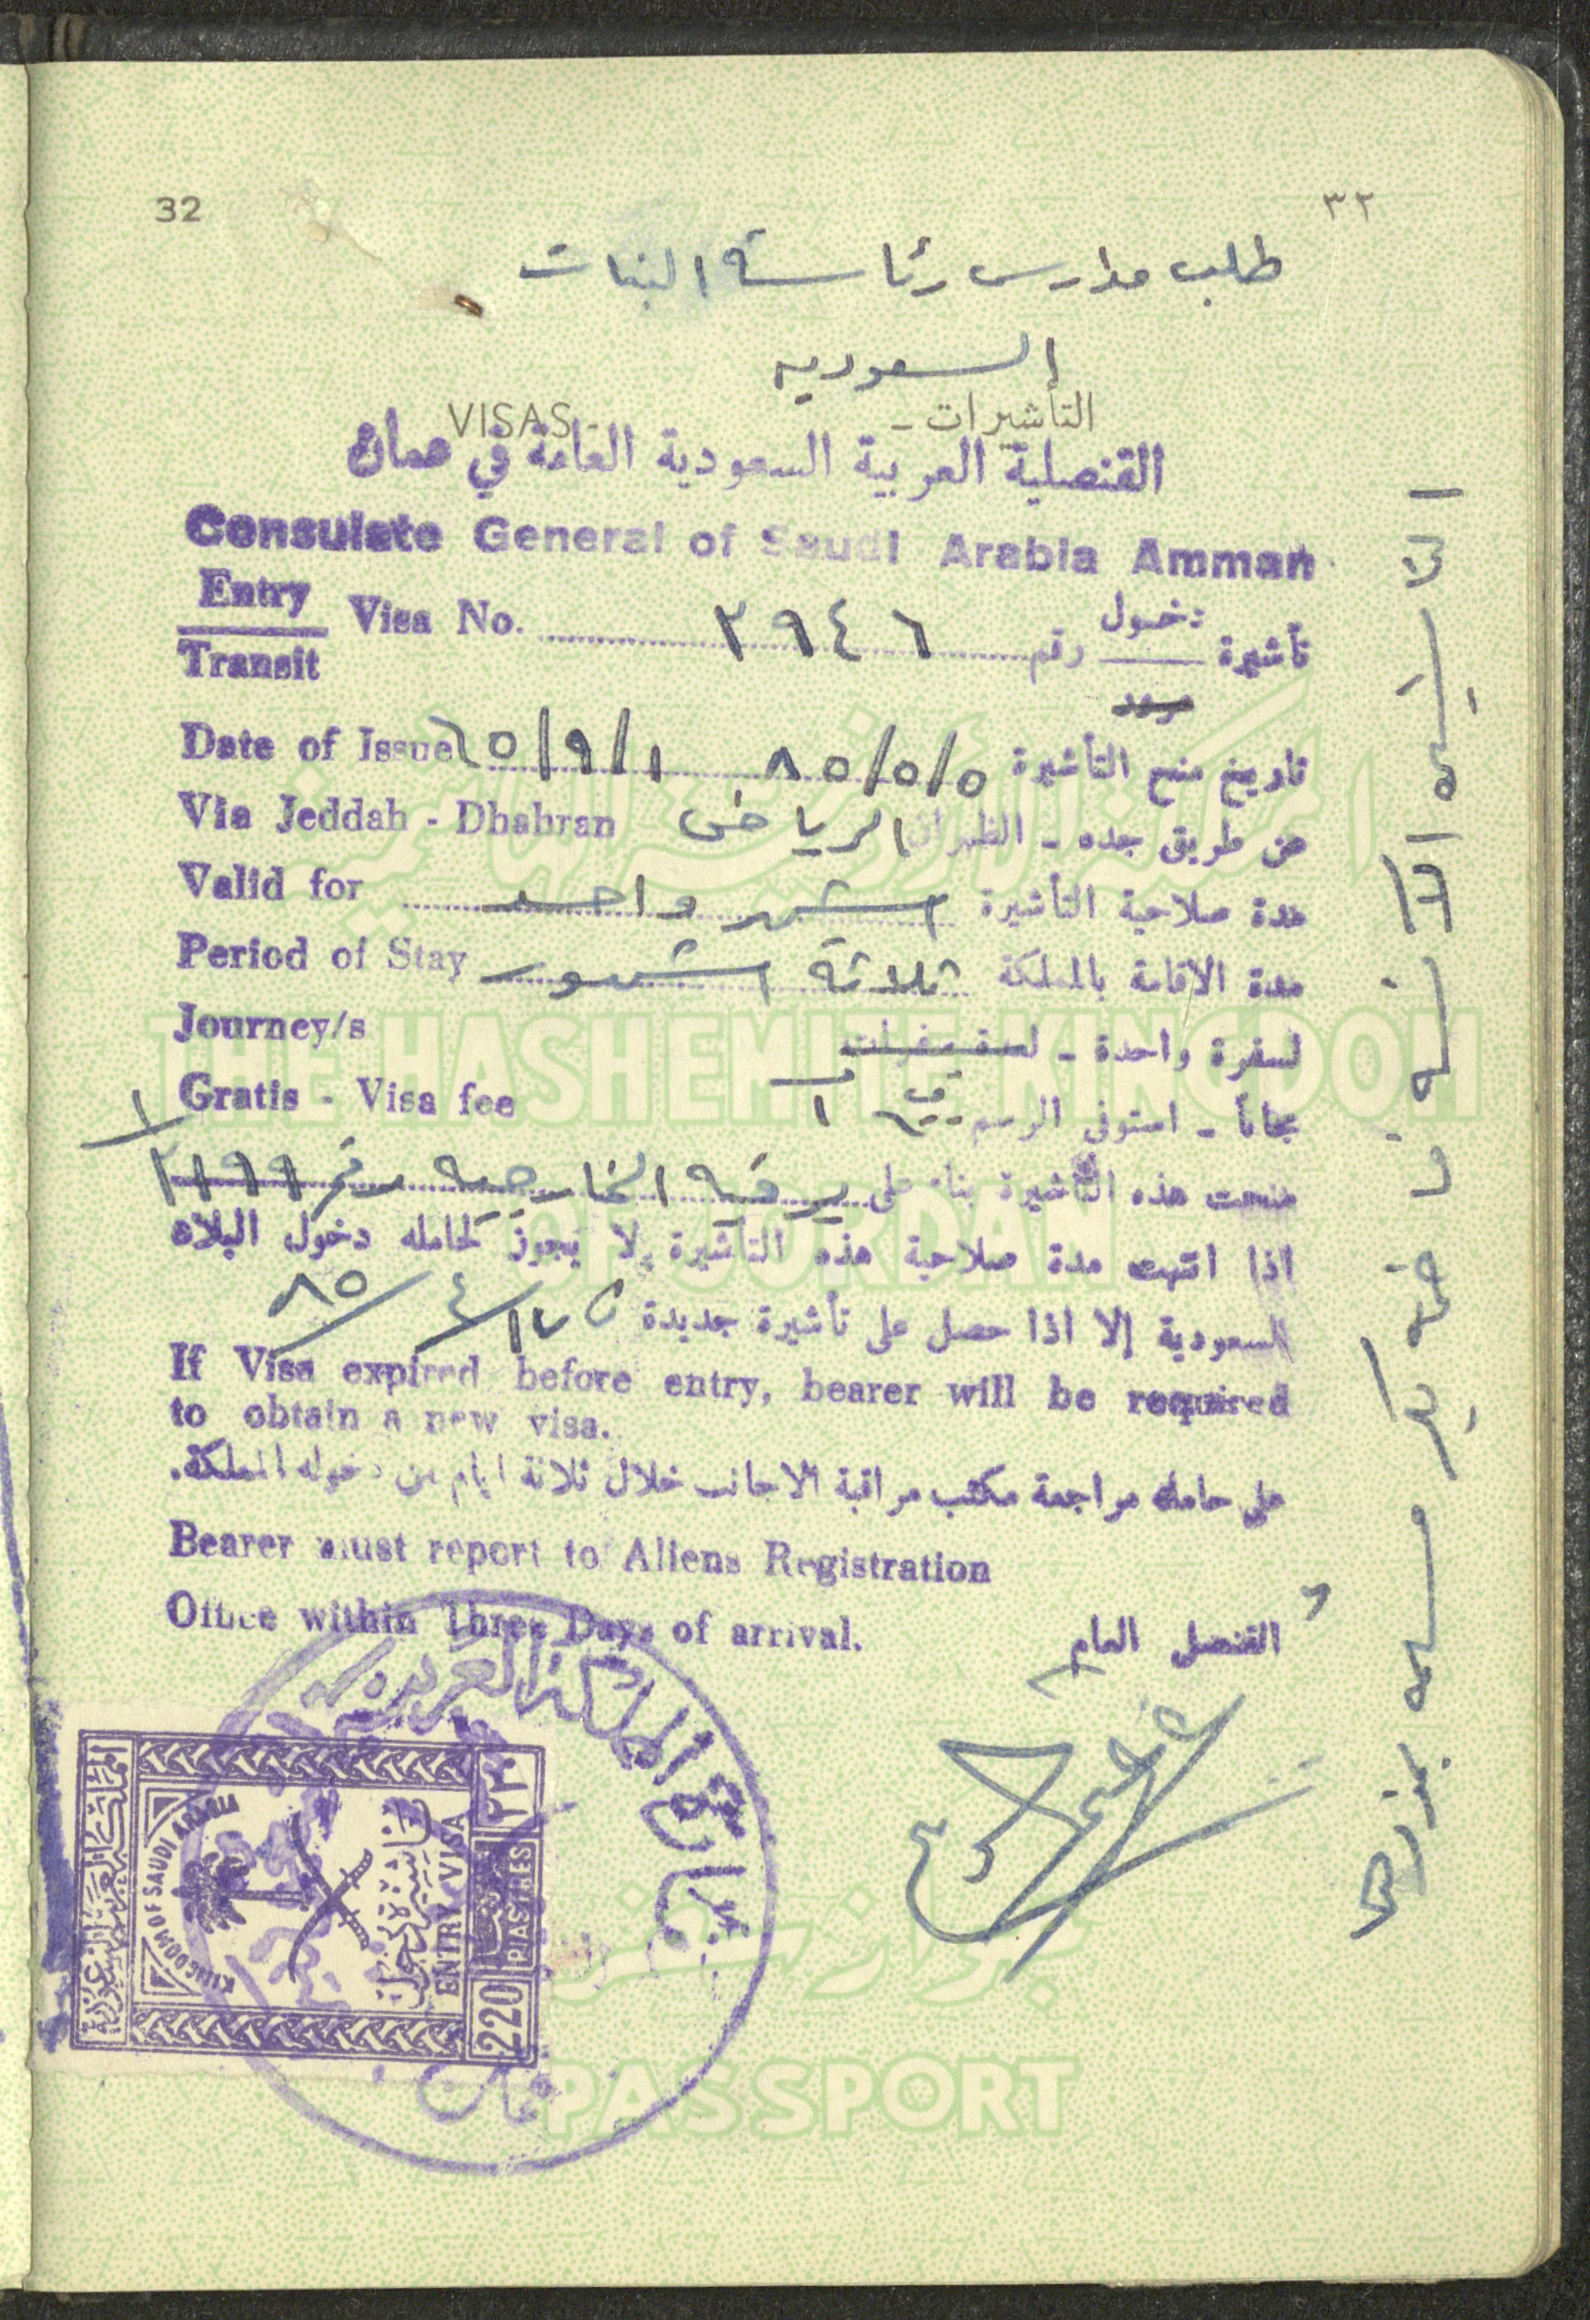 32
٣٢
طلب مدارس رئاسة البنات
السعوديه
VISAS -
التأشيرات -
القنصلية العربية السعودية العامة في عمان
Consulate General of Saudi Arabia Amman
Entry
Transit
Visa No. ٣٩٤٦ رقم
دخول
مرور
تأشيرة
Date of Issue ٦٥/٩/١ ٨٥/٥/٥ تاريخ منح التأشيرة
Via Jeddah - Dhahran الرياض عن طريق جده - الظهران
Valid for شهر واحد مدة صلاحية التأشيرة
Period of Stay ثلاثة اشهور مدة الاقامة بالمملكة
Journey/s لسفرة واحدة - لعدة سفرات
Gratis - Visa fee مجاناً - استوفي الرسم
منحت هذه التأشيرة بناء على برقيه الخارجيه رقم
اذا انتهت مدة صلاحية هذه التأشيرة لا يجوز لحامله دخول البلاد
السعودية إلا اذا حصل على تأشيرة جديدة
٨٥/٤/١٧
If Visa expired before entry, bearer will be required
to obtain a new visa.
على حامله مراجعة مكتب مراقبة الاجانب خلال ثلاثة ايام من دخوله المملكة.
Bearer must report to Aliens Registration
Office within Three Days of arrival.
القنصل العام
المملكة العربية السعودية
KINGDOM OF SAUDI ARABIA
ENTRY VISA
٢٢٠
PIASTRES
220
عمان
THE HASHEMITE KINGDOM
OF JORDAN
جواز سفر
PASSPORT